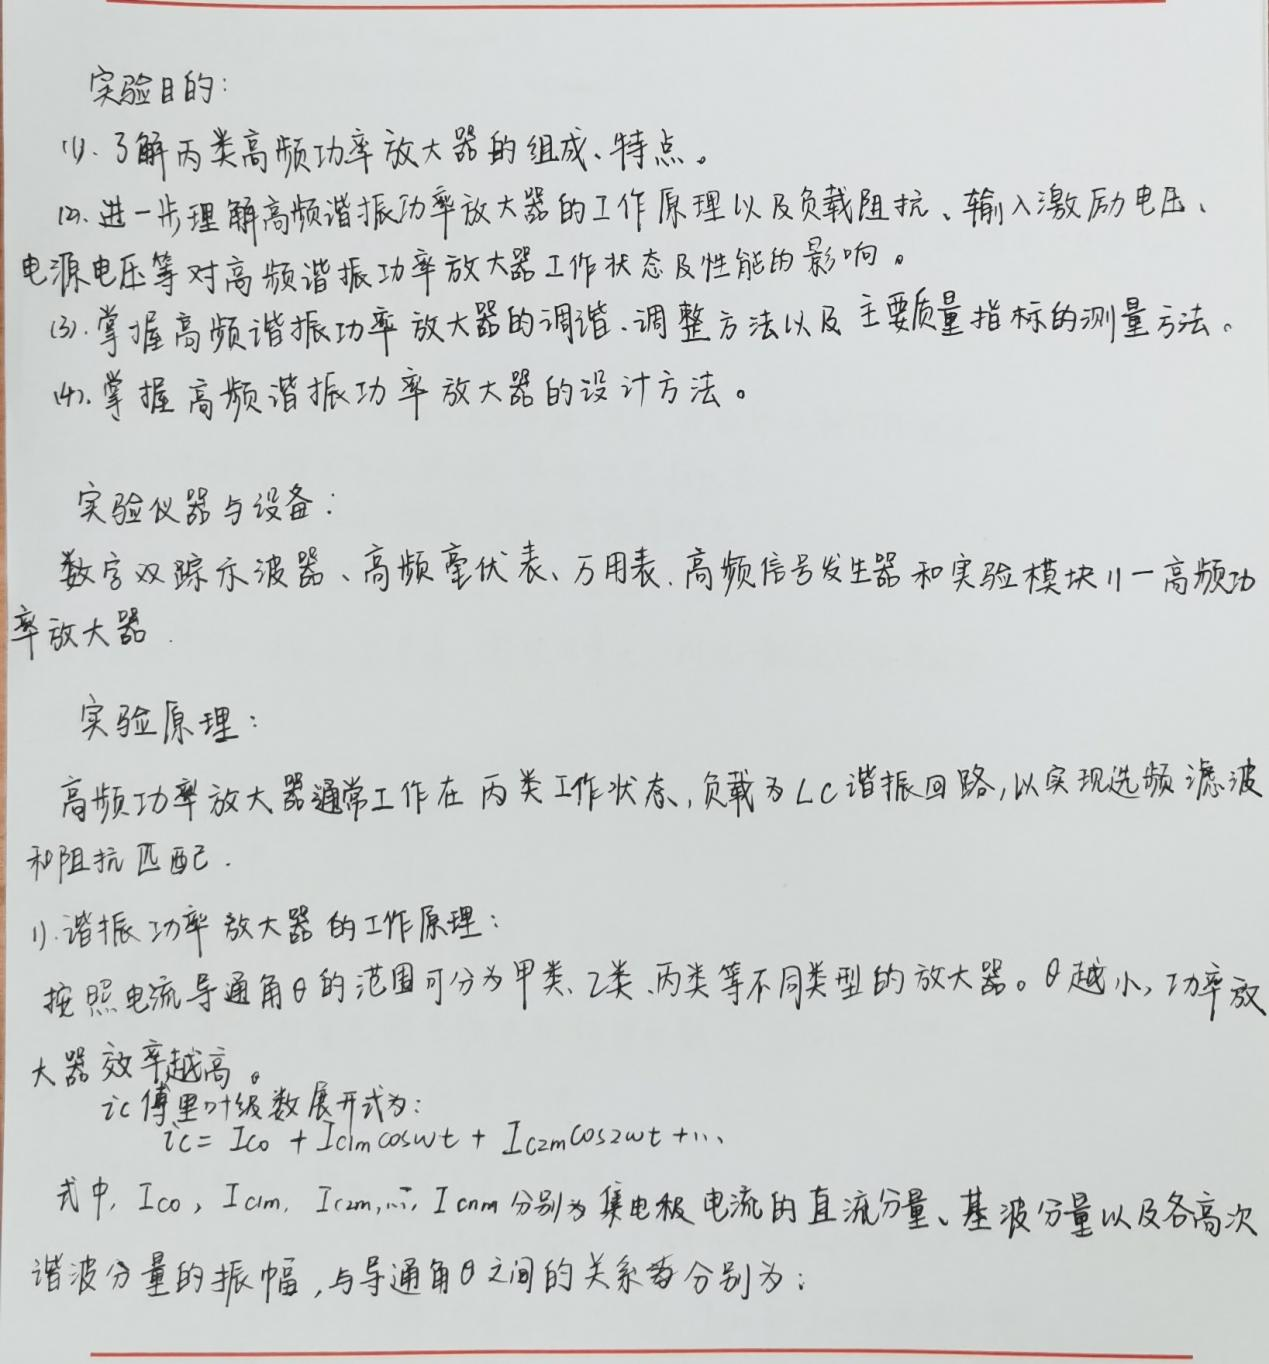 实验目的：
(1).了解丙类高频功率放大器的组成、特点。
(2).进一步理解高频谐振功率放大器的工作原理以及负载阻抗、输入激励电压、
电源电压等对高频谐振功率放大器工作状态及性能的影响。
(3).掌握高频谐振功率放大器的调谐、调整方法以及主要质量指标的测量方法。
(4).掌握高频谐振功率放大器的设计方法。
实验仪器与设备：
数字双踪示波器、高频毫伏表、万用表、高频信号发生器和实验模块11—高频功
率放大器.
实验原理：
高频功率放大器通常工作在丙类工作状态,负载为LC谐振回路,以实现选频滤波
和阻抗匹配.
1).谐振功率放大器的工作原理：
按照电流导通角θ的范围可分为甲类、乙类、丙类等不同类型的放大器。θ越小,功率放
大器效率越高。
ic傅里叶级数展开式为：
ic = Ico + Ic1m cosωt + Ic2m cos2ωt + …
式中, Ico, Ic1m, Ic2m, …, Icnm 分别为集电极电流的直流分量、基波分量以及各高次
谐波分量的振幅,与导通角θ之间的关系分别为：